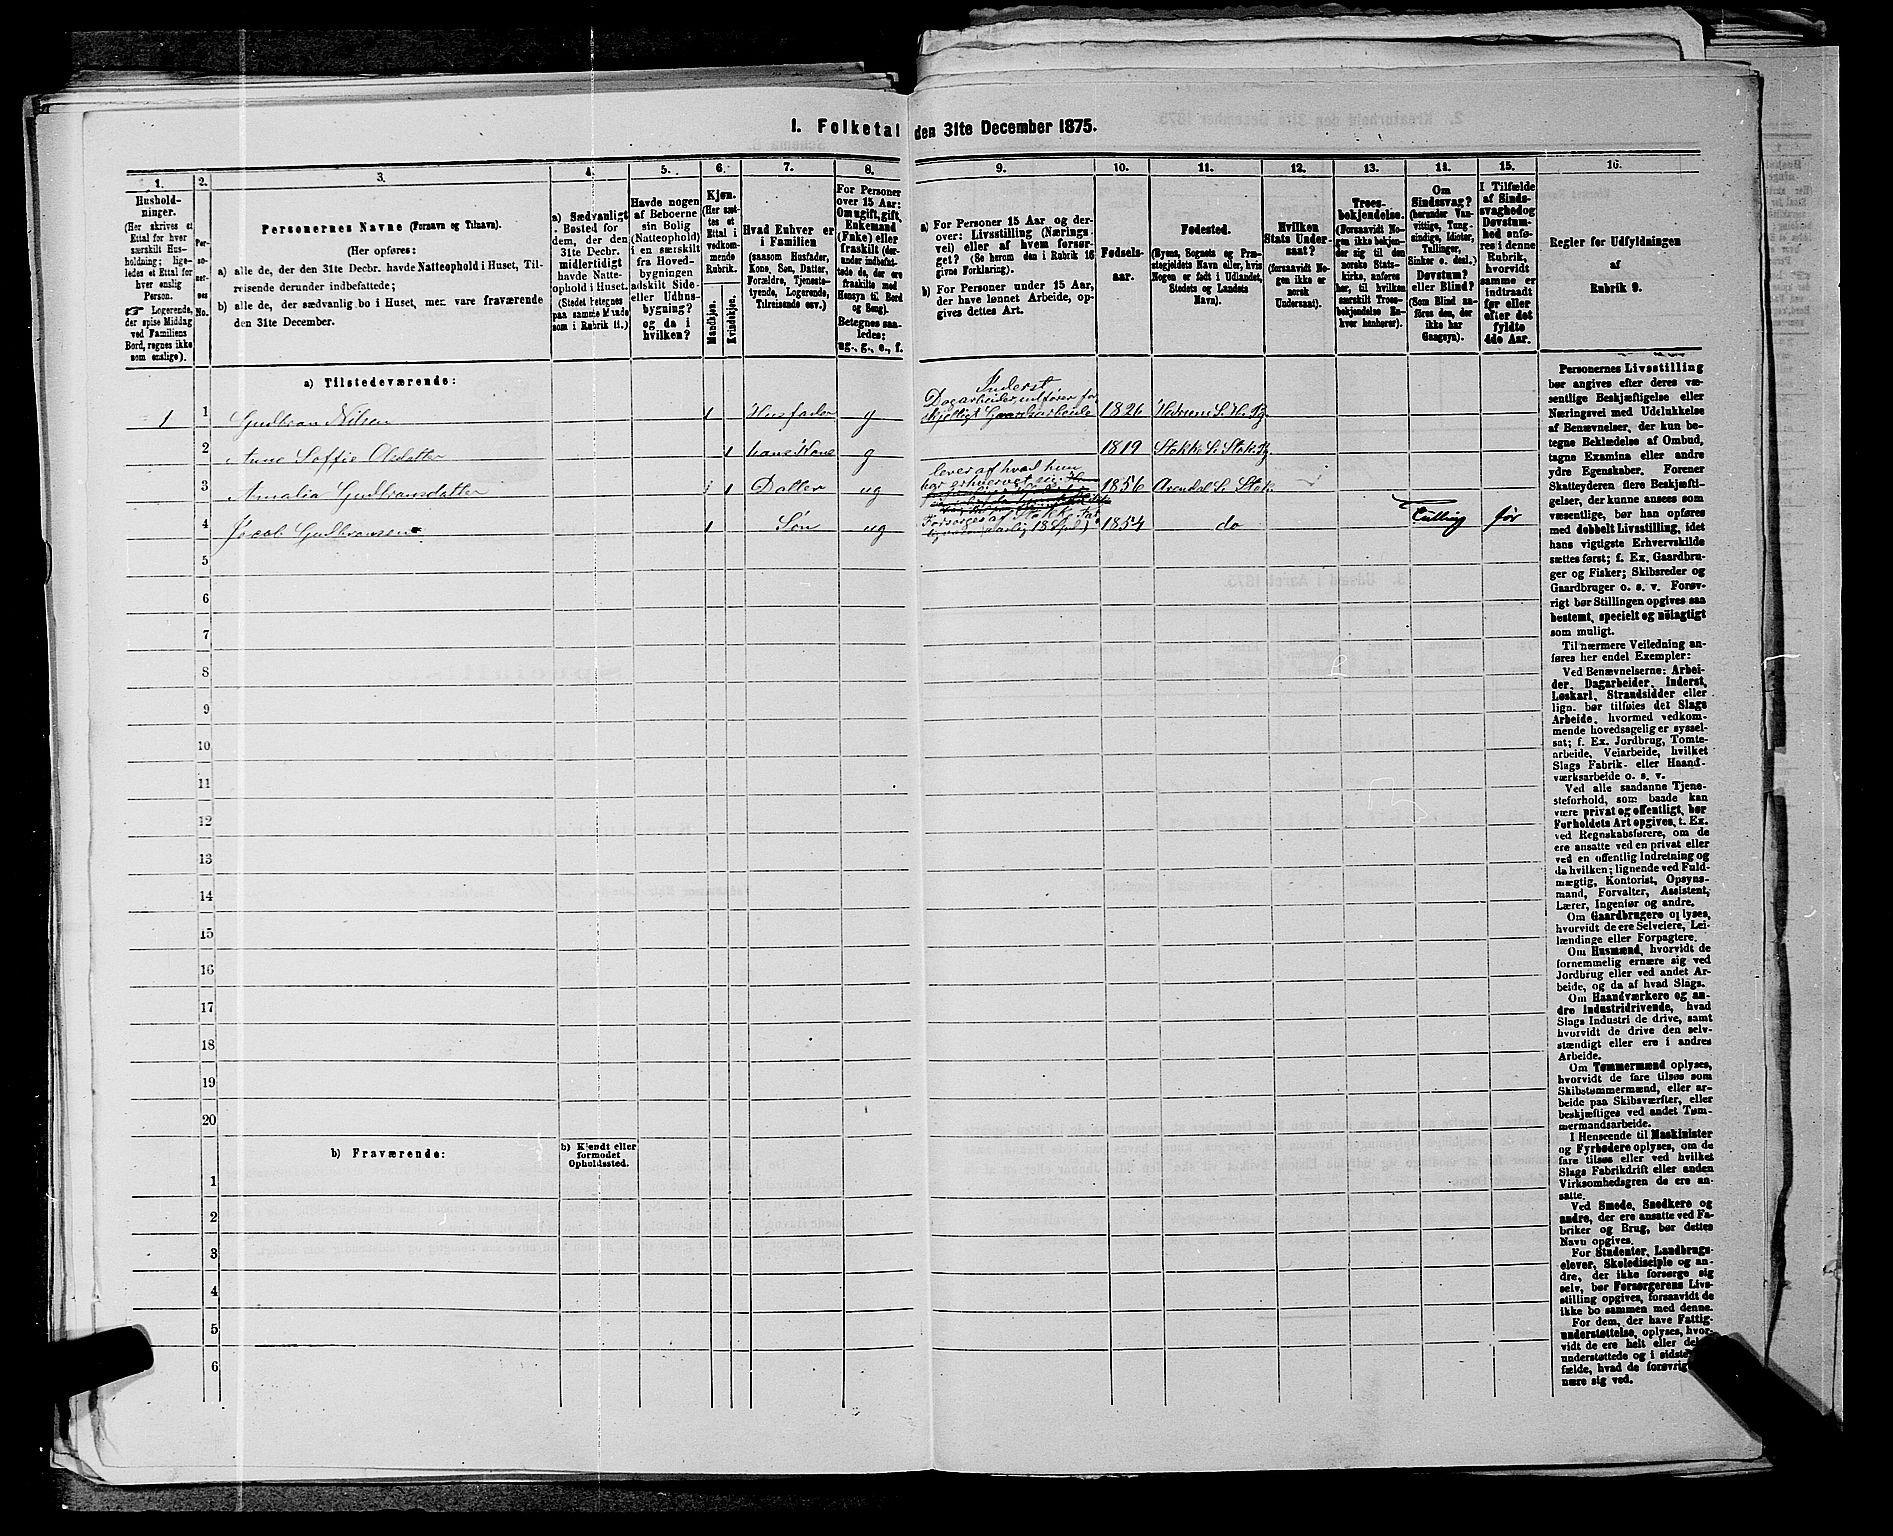 I. Folketal den 31te December 1875.
1.
Hushold-
ninger.
(Her skrives et
Ettal for hver
særskilt Hus-
holdning; lige-
ledes et Ettal for
hver enslig
Person.
☞ Logerende,
der spise Middag
ved Familiens
Bord, regnes ikke
som enslige).
2.
Per-
soner-
nes
No.
3.
Personernes Navne (Fornavn og Tilnavn).
(Her opføres:
a) alle de, der den 31te Decbr. havde Natteophold i Huset, Til-
reisende derunder indbefattede;
b) alle de, der sædvanlig bo i Huset, men vare fraværende
den 31te December.
4.
a) Sædvanligt
Bosted for
dem, der den
31te Decbr.
midlertidigt
havde Natte-
ophold i Huset.
(Stedet betegnes
paa samme Maade
som i Rubrik 11.)
5.
Havde nogen
af Beboerne
sin Bolig
(Natteophold)
i en særskilt
fra Hoved-
bygningen
adskilt Side-
eller Udhus-
bygning?
og da i
hvilken?
6.
Kjøn.
(Her sæt-
tes et
Ettal i
vedkom-
mende
Rubrik.
Mandkjøn.
Kvindekjøn.
7.
Hvad Enhver er
i Familien
(saasom Husfader,
Kone, Søn, Datter,
Forældre, Tjeneste-
tyende, Logerende,
Tilreisende osv.)
8.
For Personer
over 15 Aar:
Om ugift, gift,
Enkemand
(Enke) eller
fraskilt (der-
under indbefat-
tede de, der ere
fraskilte med
Hensyn til Bord
og Seng).
Betegnes saa-
ledes:
ug., g., e., f.
9.
a) For Personer 15 Aar og der-
over: Livsstilling (Nærings-
vei) eller af hvem forsør-
get? (Se herom den i Rubrik 16
givne Forklaring).
b) For Personer under 15 Aar,
der have lønnet Arbeide, op-
gives dettes Art.
10.
Fødsels-
aar.
11.
Fødested.
(Byens, Sognets og Præ-
stegjeldets Navn eller, hvis
Nogen er født i Udlandet,
Stedets og Landets
Navn).
12.
Hvilken
Stats Under-
saat?
(forsaavidt No-
gen ikke er
norsk
Undersaat).
13.
Troes-
bekjendelse.
(Forsaavidt No-
gen ikke bekjen-
der sig til den
norske Stats-
kirke, anføres
her, til hvilken
særskilt Troes-
bekjendelse En-
hver henhører).
14.
Om
Sindssvag?
(herunder Van-
vittige, Tung-
sindige, Idioter,
Tullinger,
Sinker o. desl.)
Døvstum?
eller Blind?
(Som Blind an-
føres den, der
ikke har
Gangsyn).
15.
I Tilfælde
af Sinds-
svaghed og
Døvstum-
hed anfø-
res i denne
Rubrik,
hvorvidt
samme er
indtraadt
før eller
efter det
fyldte
4de Aar.
16.
Regler for Udfyldningen
af
Rubrik 9.
a) Tilstedeværende:
1 1 Gudbran Nilsen 1 Husfader g Inderst
Dagarbeider, udfører for-
skjelligt Gaardsarbeide 1826
2 Anne Soffie Olsdatter 1 hans Kone g 1819 Stokke S. Stok. Pg.
3 Amalia Gudbransdatter 1 Datter ug lever af hvad hun
har erhvervet sig 1856 Arendal S. Stok.
4 Jacob Gudbransen 1 Søn ug Forsørges af Stokke 1854 do Tulling før
5
6
7
8
9
10
11
12
13
14
15
16
17
18
19
20
b) Fraværende:
b) Kjendt eller
formodet
Opholdssted.
1
2
3
4
5
6
Personernes Livsstilling
bør angives efter deres væ-
sentlige Beskjæftigelse eller
Næringsvei med Udelukkelse
af Benævnelser, der kun be-
tegne Beklædelse af Ombud,
tagne Examina eller andre
ydre Egenskaber. Forener
Skatteyderen flere Beskjæfti-
gelser, der kunne ansees som
væsentlige, bør han opføres
med dobbelt Livsstilling, idet
hans vigtigste Erhvervskilde
sættes først; f. Ex. Gaardbru-
ger og Fisker; Skibsreder og
Gaardbruger o. s. v. Forøv-
rigt bør Stillingen opgives saa
bestemt, specielt og nöiagtigt
som muligt.
Til nærmere Veiledning an-
føres her endel Exempler:
Ved Benævnelserne: Arbei-
der, Dagarbeider, Inderst,
Løskarl, Strandsidder eller
lign. bør tilføies det Slags
Arbeide, hvormed vedkom-
mende hovedsagelig er syssel-
sat; f. Ex. Jordbrug, Tomte-
arbeide, Veiarbeide, hvilket
Slags Fabrik- eller Haand-
værksarbeide o. s. v.
Ved alle saadanne Tjene-
steforhold, som baade kan
være privat og offentligt, bør
Forholdets Art opgives, t. Ex.
ved Regnskabsførere, om de
ere ansatte ved en privat eller
ved en offentlig Indretning og
da hvilken; lignende ved Fuld-
mægtig, Kontorist, Opsyns-
mand, Forvalter, Assistent,
Lærer, Ingeniør og andre.
Om Gaardbrugere oplyses,
hvorvidt de ere Selveiere, Lei-
lændinge eller Forpagtere.
Om Husmænd, hvorvidt de
fornemmelig ernære sig ved
Jordbrug eller ved andet Ar-
beide, og da af hvad Slags.
Om Haandværkere og an-
dre Industridrivende, hvad
Slags Industri de drive, samt
hvorvidt de drive den selv-
stændigt eller ere i andres
Arbeide.
Om Tømmermænd oplyses,
hvorvidt de fare tilsøs som
Skibstømmermænd, eller ar-
beide paa Skibsværfter, eller
beskjæftiges ved andet Tøm-
mermandsarbeide.
I Henseende til Maskinister
og Fyrbødere oplyses, om de
fare tilsøs eller ved hvilket
Slags Fabrikdrift eller anden
Virksomhedsgren de ere an-
satte.
Ved Smede, Snedkere og
andre, der ere ansatte ved Fa-
briker og Brug, bør dettes
Navn opgives.
For Studenter, Landbrugs-
elever, Skoledisciple og an-
dre, der ikke forsørge sig
selv, bør Forsørgerens Livs-
stilling opgives, forsaavidt de
ikke bo sammen med denne.
For dem, der have Fattig-
understøttelse, oplyses, hvor-
vidt de ere helt eller delvis
understøttede og i sidste
fælde, hvad de forøvrigt
nære sig ved.